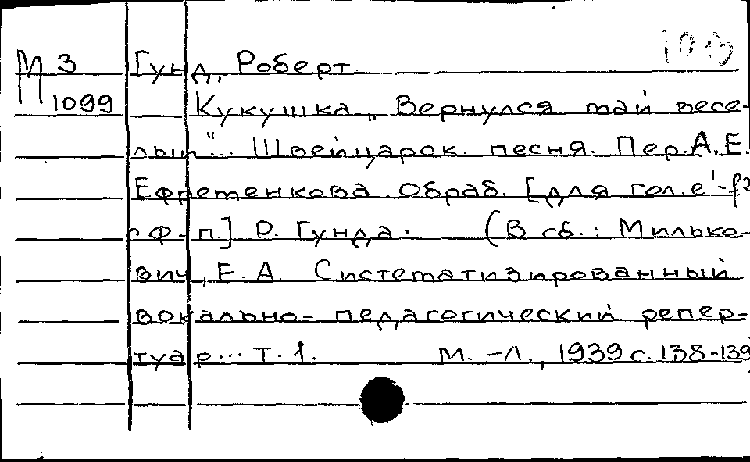 М 3 Гунд, Роберт
1099 Кукушка „Вернулся май весе-
лый". Швейцарск. песня. Пер. А.Е.
Ефременкова. Обраб. [для гол. e'-f²
с ф-п] Р. Гунда. (В сб.: Милько-
вич, Е.А. Систематизированный
вокально-педагогический репер-
туар... Т.1. М.-Л., 1939 с. 138-139